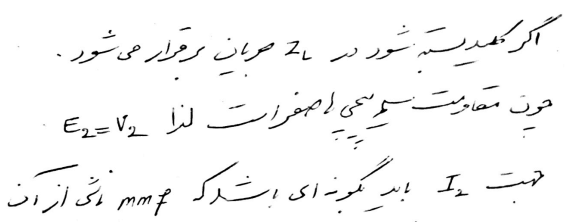 اگر کلید بسته شود در ZL جریان برقرار می شود .
چون مقاومت سیم پیچی ها صفر است لذا E2=V2
جهت I2 باید بگونه ای باشد که mmf ناشی از آن